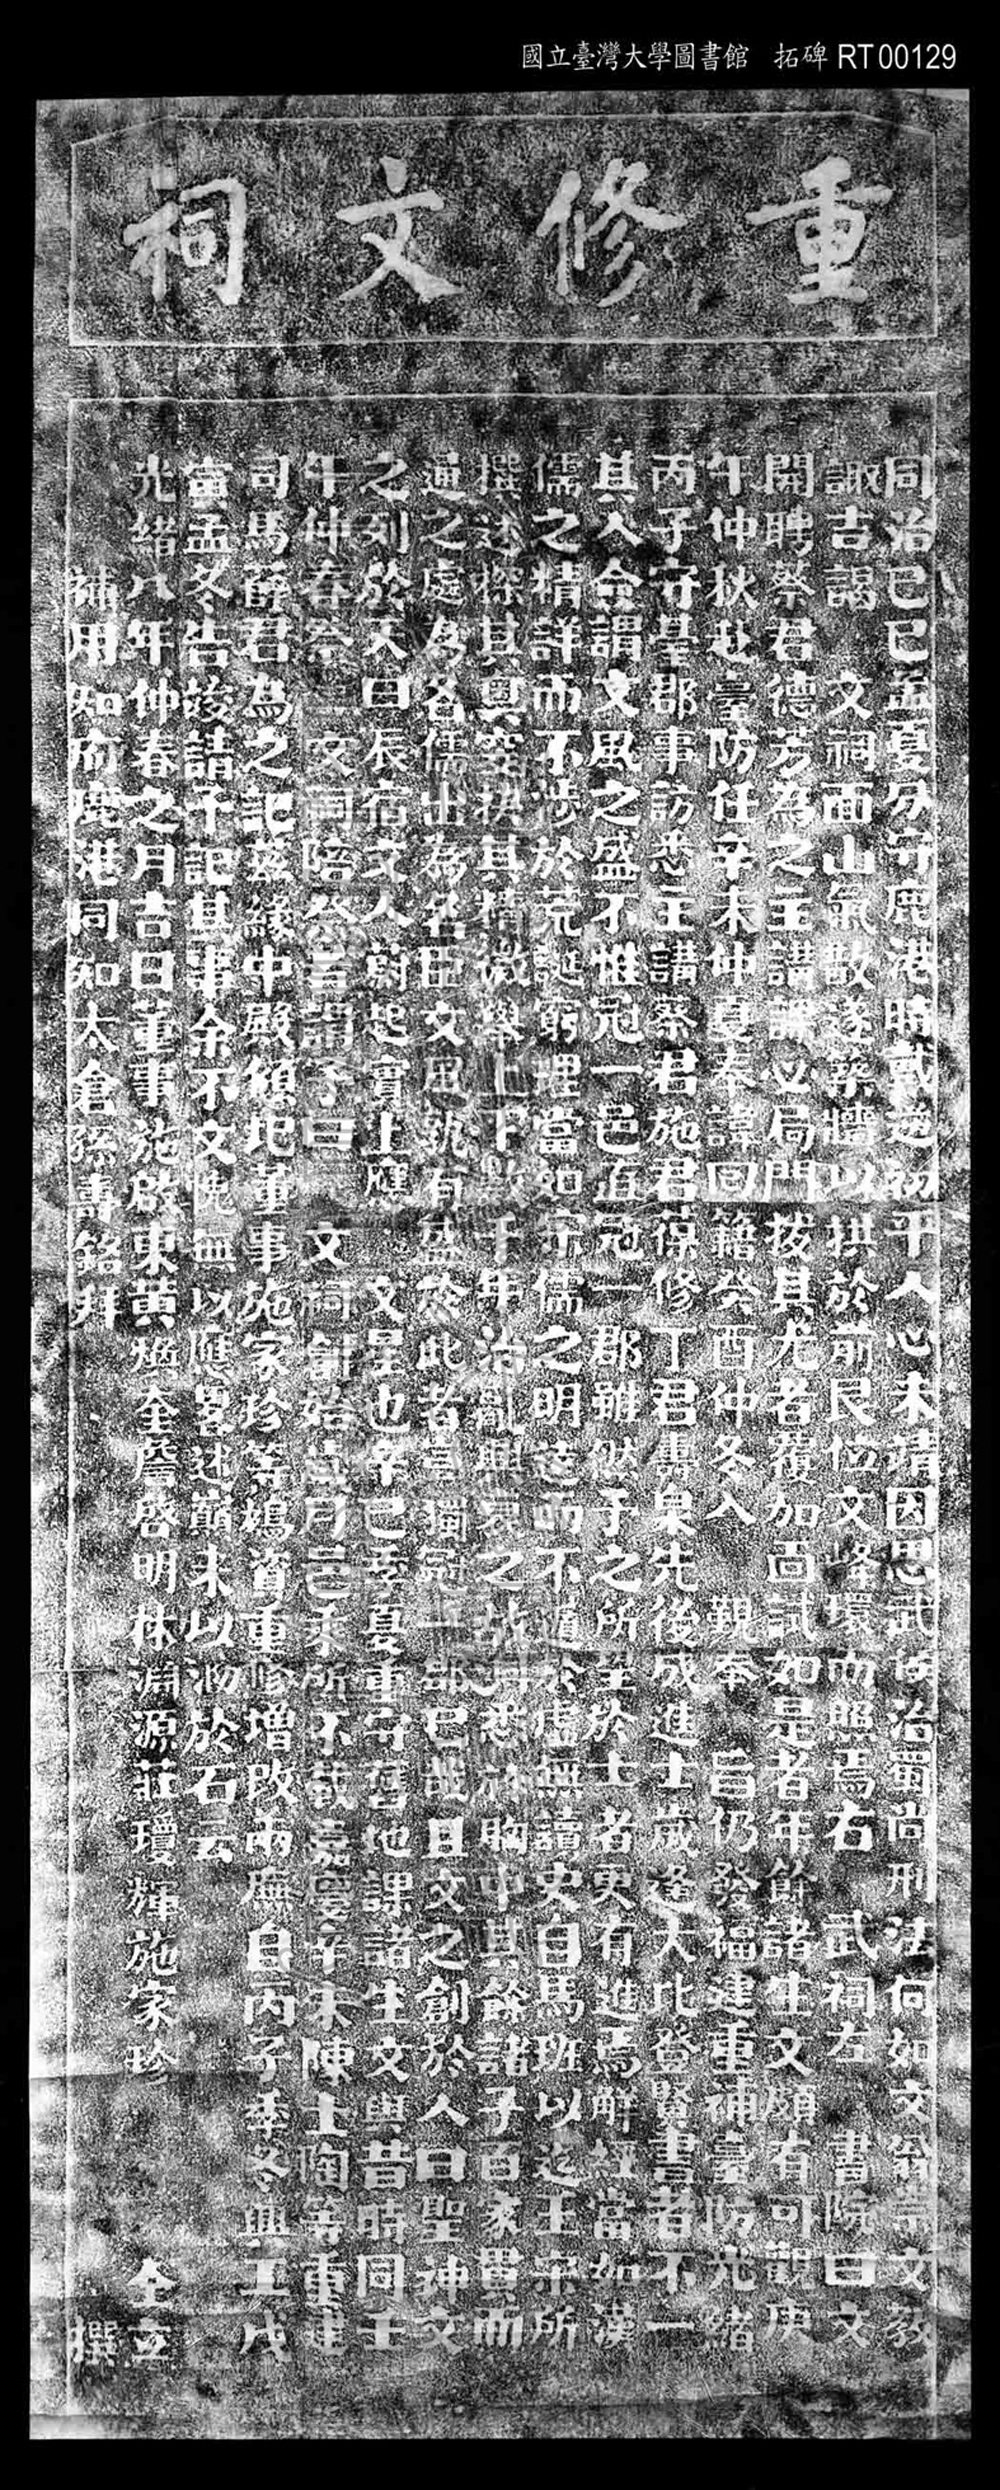 國立臺灣大學圖書館 拓碑 RT00129
重修文祠
同治己巳孟夏分守鹿港時戴逆初平人心未靖因思武侯治蜀尚刑法何如文翁崇文教
諏吉謁 文祠面山氣散遂築牆以拱於前艮位文峰環而照焉右 武祠左 書院曰文
開聘蔡君德芳為之主講課必局門拔其尤者覆加面試如是者年餘諸生文頗有可觀庚
午仲秋赴臺防任辛未仲夏奉諱回籍癸酉仲冬入 覲奉 旨仍發福建重補臺防光緒
丙子守臺郡事訪悉主講蔡君施君葆修丁君壽泉先後成進士歲逢大比登賢書者不一
其人僉謂文風之盛不惟冠一邑直冠一郡雖然予之所望於士者更有進焉解經當如漢
儒之精詳而不涉於荒誕窮理當如宋儒之明達而不遁於虛無讀史自馬班以迄王宋所
撰述探其奧窔抉其精微舉上下數千年治亂興衰之故洞悉於胸中其餘諸子百家貫而
通之處為名儒出為名臣文風孰有盛於此者豈獨冠一郡已哉且文之創於人曰聖神文
之列於天曰辰宿文人蔚起實上應 文星也辛巳季夏重守舊地課諸生文與昔時同壬
午仲春祭 文祠陪祭者謂予曰 文祠創始 司 所不載 辛未陳士陶等重建
司馬薛君為之記茲緣中殿傾圮董事施家珍等鳩資重修增改兩廡自丙子季冬興工戊
寅孟冬告竣請予記其事余不文愧無以應畧述巔末以泐於石云
光緒八年仲春之月吉日董事施啟東黃煥奎詹啓明林淵源莊瓊輝施家珍 仝立
補用知府鹿港同知太倉孫壽銘拜 撰